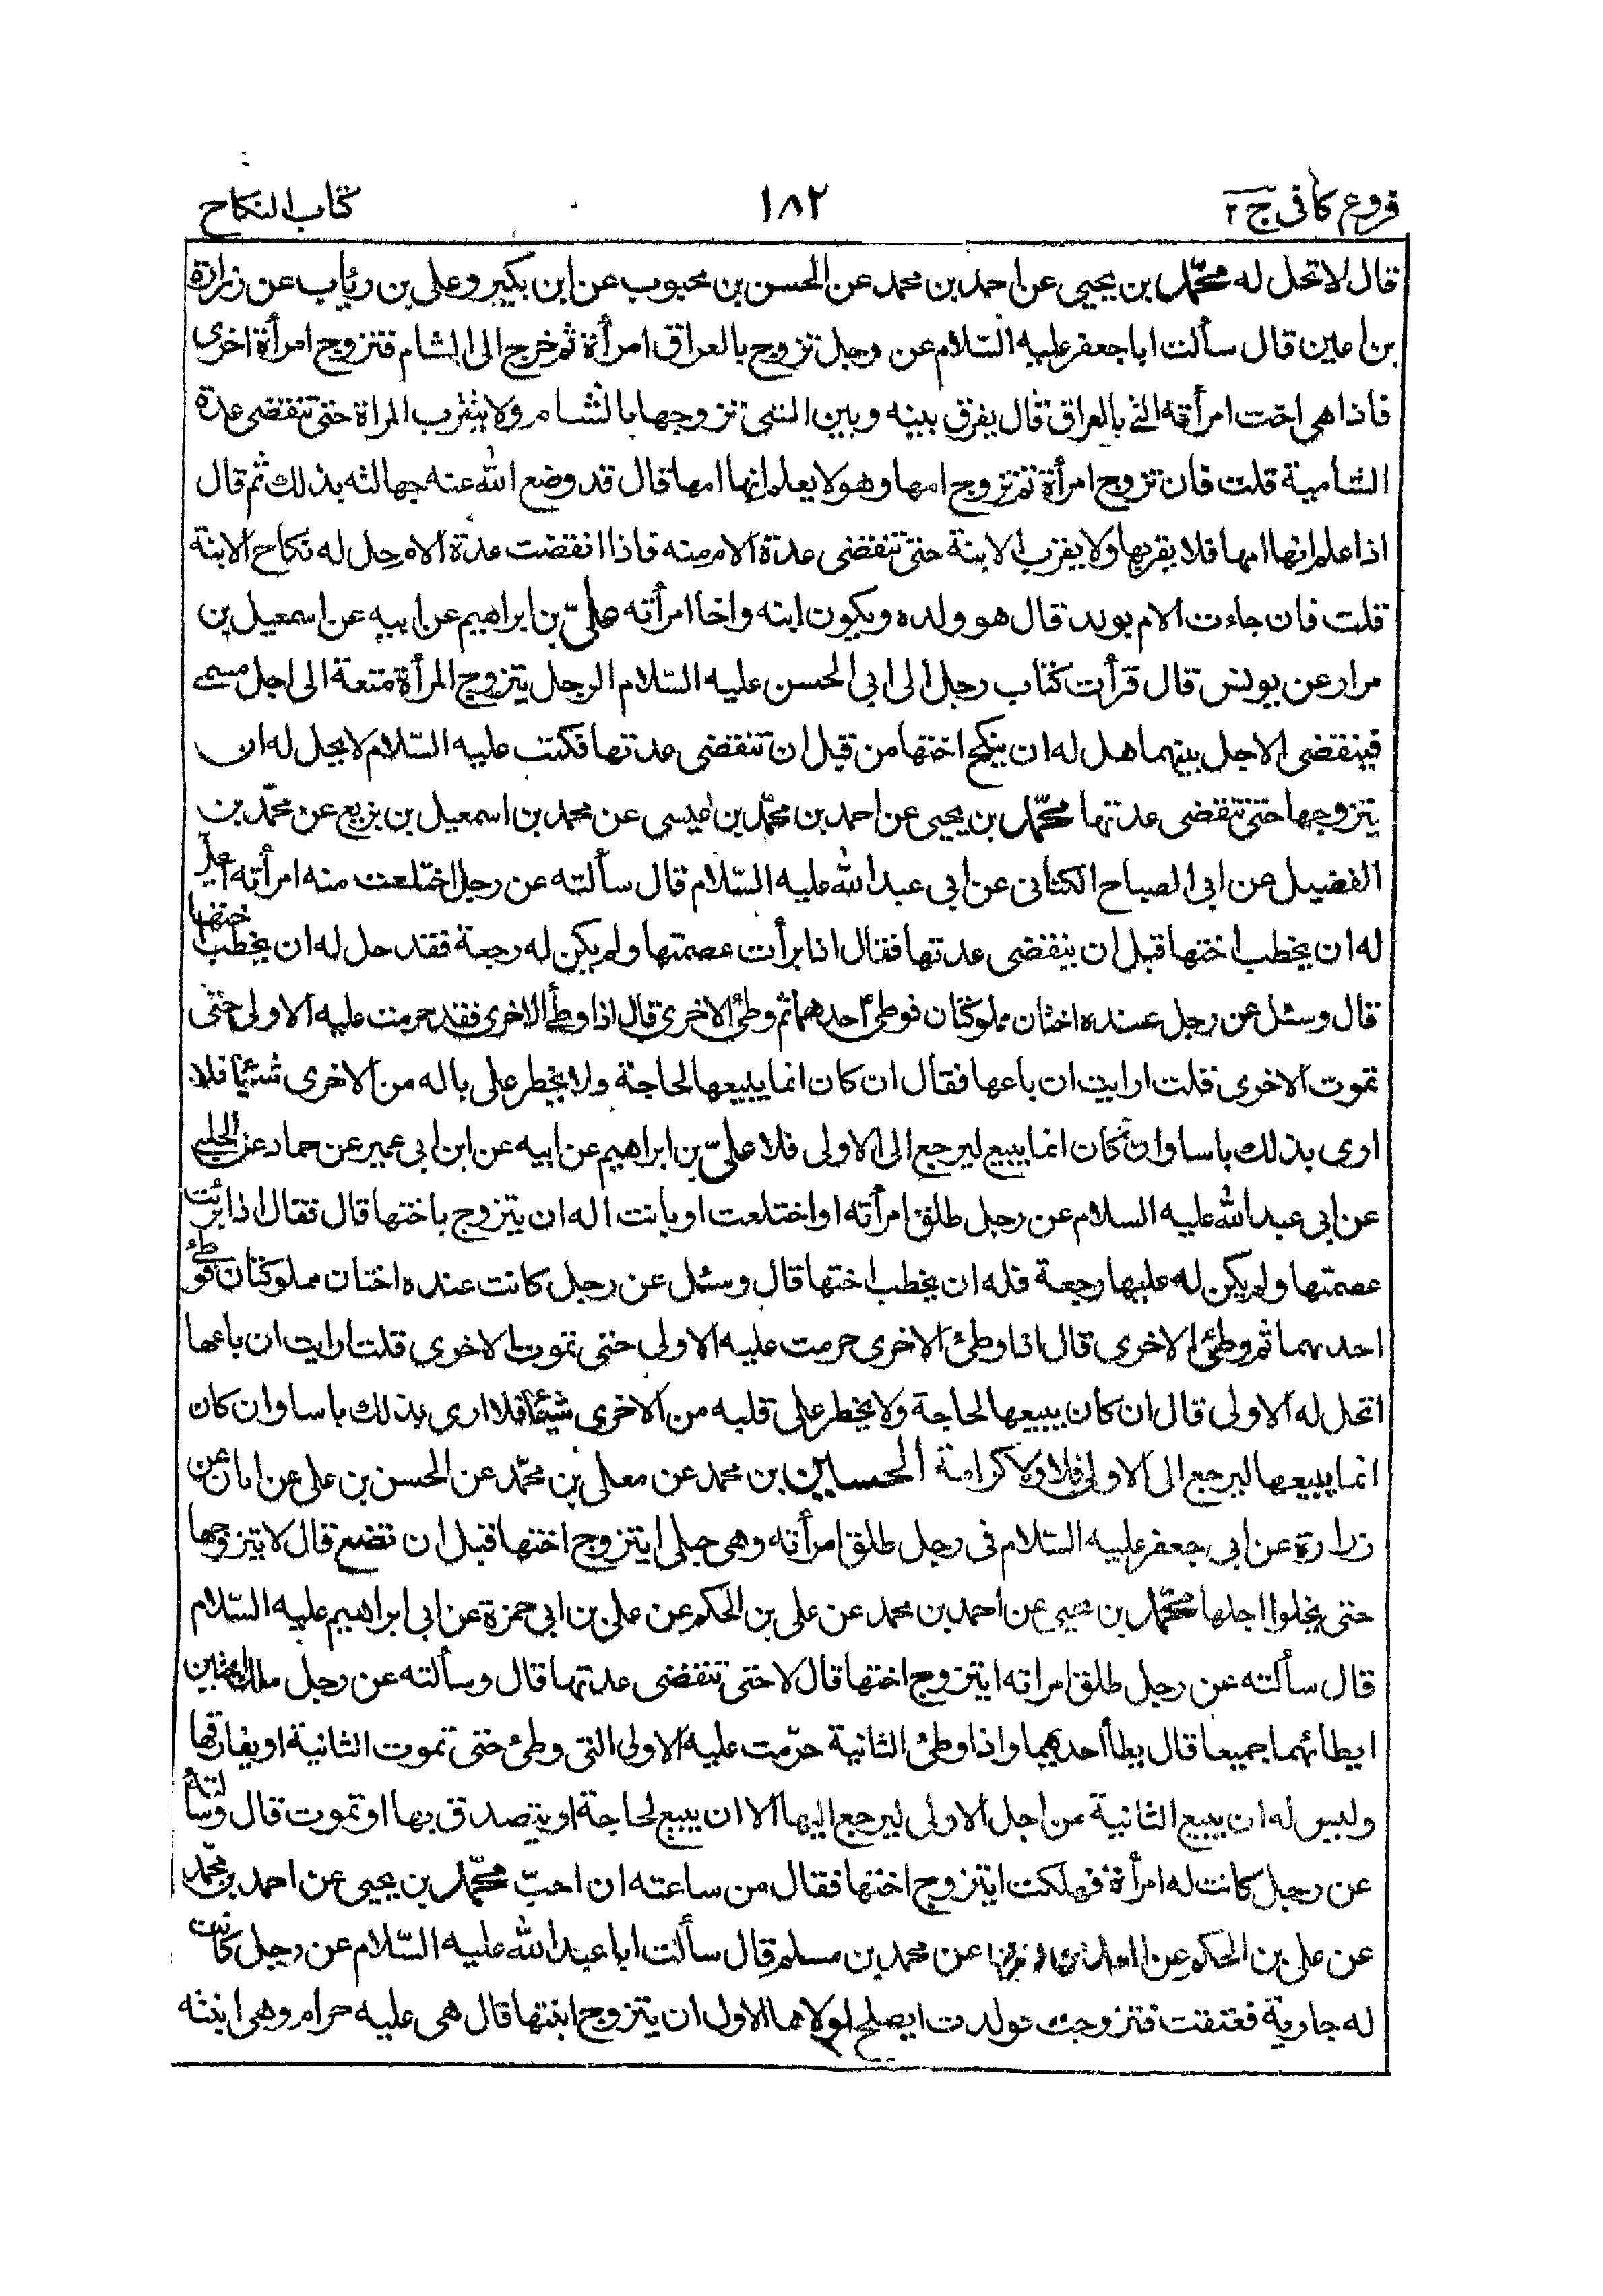 فروع كافى ج ٢
١٨٢
كتاب النكاح
قال لا تحل له محمّد بن يحيى عن احمد بن محمد عن الحسن بن محبوب عن ابن بكير وعلى بن رياب عن زرارة
بن اعين قال سألت ابا جعفر عليه السّلام عن رجل تزوج بالعراق امرأة ثم خرج الى الشام فتزوج امرأة اخرى
فاذا هى اخت امرأته التى بالعراق قال يفرق بينه وبين التى تزوجها بالشام ولا يقرب المراة حتى تنقضى عدة
الشامية قلت فان تزوج امرأة ثم تزوج امها وهو لا يعلم انها امها قال قد وضع الله عنه جهالته بذلك ثم قال
اذا علم انها امها فلا يقربها ولا يقرب الابنة حتى تنقضى عدة الام منه فاذا انقضت عدة الام حل له نكاح الابنة
قلت فان جاءت الام بولد قال هو ولده ويكون ابنه واخا امرأته علىّ بن ابراهيم عن ابيه عن اسمعيل بن
مرار عن يونس قال قرأت كتاب رجل الى ابى الحسن عليه السّلام الرجل يتزوج المرأة متعة الى اجل مسمى
فينقضى الاجل بينهما هل له ان ينكح اختها من قبل ان تنقضى عدتها فكتب عليه السّلام لا يحل له ان
يتزوجها حتى تنقضى عدتها محمّد بن يحيى عن احمد بن محمّد بن عيسى عن محمد بن اسمعيل بن بزيع عن محمّد بن
الفضيل عن ابى الصباح الكنانى عن ابى عبد الله عليه السّلام قال سألته عن رجل اختلعت منه امرأته ايحل
له ان يخطب اختها قبل ان ينقضى عدتها فقال اذا برأت عصمتها ولم يكن له رجعة فقد حل له ان يخطب اختها
قال وسئل عن رجل عنده اختان مملوكتان فوطى احدهما ثم وطئ الاخرى قال اذا وطئ الاخرى فقد حرمت عليه الاولى حتى
تموت الاخرى قلت ارايت ان باعها فقال ان كان انما يبيعها لحاجة ولا يخطر على باله من الاخرى شيئا فلا
ارى بذلك باسا وان كان انما يبيع ليرجع الى الاولى فلا علىّ بن ابراهيم عن ابيه عن ابن ابى عمير عن حماد عن الحلبى
عن ابى عبد الله عليه السلام عن رجل طلق امرأته او اختلعت او بانت اله ان يتزوج باختها قال فقال اذا برئت
عصمتها ولم يكن له عليها رجعة فله ان يخطب اختها قال وسئل عن رجل كانت عنده اختان مملوكتان فوطئ
احدىهما ثم وطئ الاخرى قال اذا وطئ الاخرى حرمت عليه الاولى حتى تموت الاخرى قلت ارايت ان باعها
اتحل له الاولى قال ان كان يبيعها لحاجة ولا يخطر على قلبه من الاخرى شيئا فلا ارى بذلك باسا وان كان
انما يبيعها ليرجع الى الاولى فلا ولا كرامة الحسين بن محمد عن معلى بن محمّد عن الحسن بن على عن ابان عن
زرارة عن ابى جعفر عليه السّلام فى رجل طلق امرأته وهى حبلى ايتزوج اختها قبل ان تضع قال لا يتزوجها
حتى يخلوا اجلها محمّد بن يحيى عن احمد بن محمد عن على بن الحكم عن على بن ابى حمزة عن ابى ابراهيم عليه السّلام
قال سألته عن رجل طلق امراته ايتزوج اختها قال لا حتى تنقضى عدتها قال وسألته عن رجل ملك اختين
ايطائهما جميعا قال يطأ احدهما واذا وطئ الثانية حرّمت عليه الاولى التى وطئ حتى تموت الثانية او يفارقها
وليس له ان يبيع الثانية من اجل الاولى ليرجع اليها الا ان يبيع لحاجة او يتصدق بها او تموت قال وسألته
عن رجل كانت له امرأة فهلكت ايتزوج اختها فقال من ساعته ان احبّ محمّد بن يحيى عن احمد بن محمّد
عن على بن الحكم عن العلاء بن رزين عن محمد بن مسلم قال سألت ابا عبد الله عليه السّلام عن رجل كانت
له جارية فعتقت فتزوجت فولدت ايصلح لمولاها الاول ان يتزوج ابنتها قال هى عليه حرام وهى ابنته